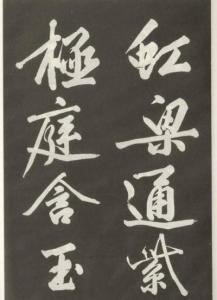 虹梁通紫
極庭含玉